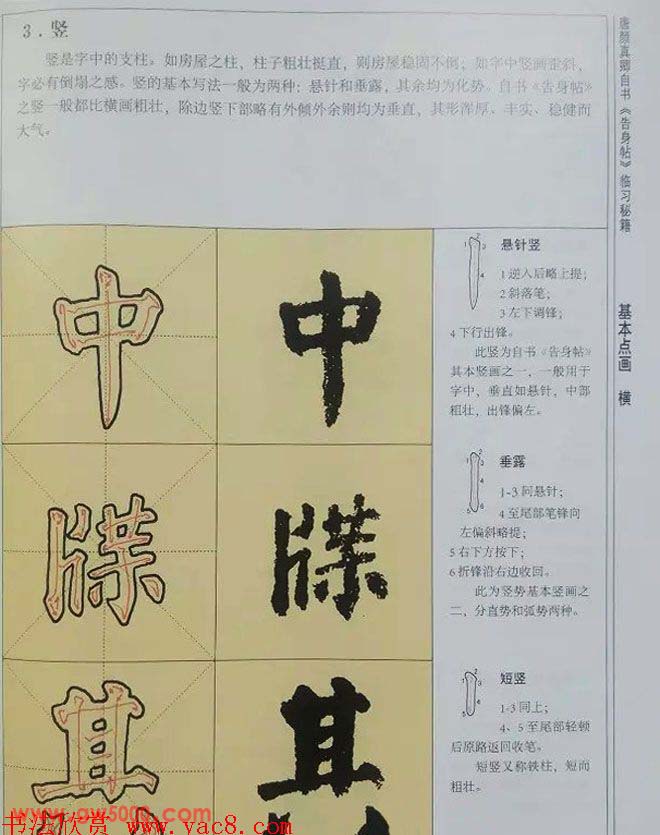 3．竖
竖是字中的支柱。如房屋之柱，柱子粗壮挺直，则房屋稳固不倒；如字中竖画歪斜，
字必有倒塌之感。竖的基本写法一般为两种：悬针和垂露，其余均为化势。自书《告身帖》
之竖一般都比横画粗壮，除边竖下部略有外倾外余则均为垂直，其形浑厚、丰实、稳健而
大气。
唐颜真卿自书《告身帖》临习秘籍
基本点画 横
中
中
悬针竖
1 2 3 4
1逆入后略上提；
2斜落笔；
3左下调锋；
4下行出锋。
此竖为自书《告身帖》
其本竖画之一，一般用于
字中，垂直如悬针，中部
粗壮，出锋偏左。
牒
牒
垂露
1 2 3 4 5 6
1-3同悬针；
4至尾部笔锋向
左偏斜略提；
5右下方按下；
6折锋沿右边收回。
此为竖势基本竖画之
二，分直势和弧势两种。
短竖
1 2 3 4 5 6
1-3同上；
4、5至尾部轻顿
后原路返回收笔。
短竖又称铁柱，短而
粗壮。
www.gw5000.com
书法欣赏 www.yac8.com